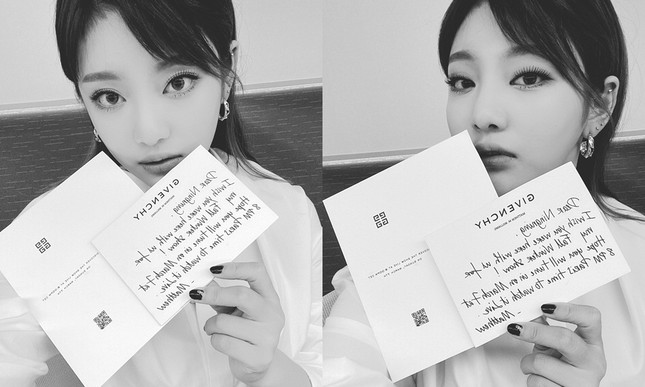 GIVENCHY
Dear Ningning,
I wish you were here with us for
my Fall Winter Show !
Hope you will tune in on March 7 at
8 PM Paris time to watch it live
- Matthew
GIVENCHY
Dear Ningning,
I wish you were here with us for
my Fall Winter Show !
Hope you will tune in on March 7 at
8 PM Paris time to watch it live
- Matthew